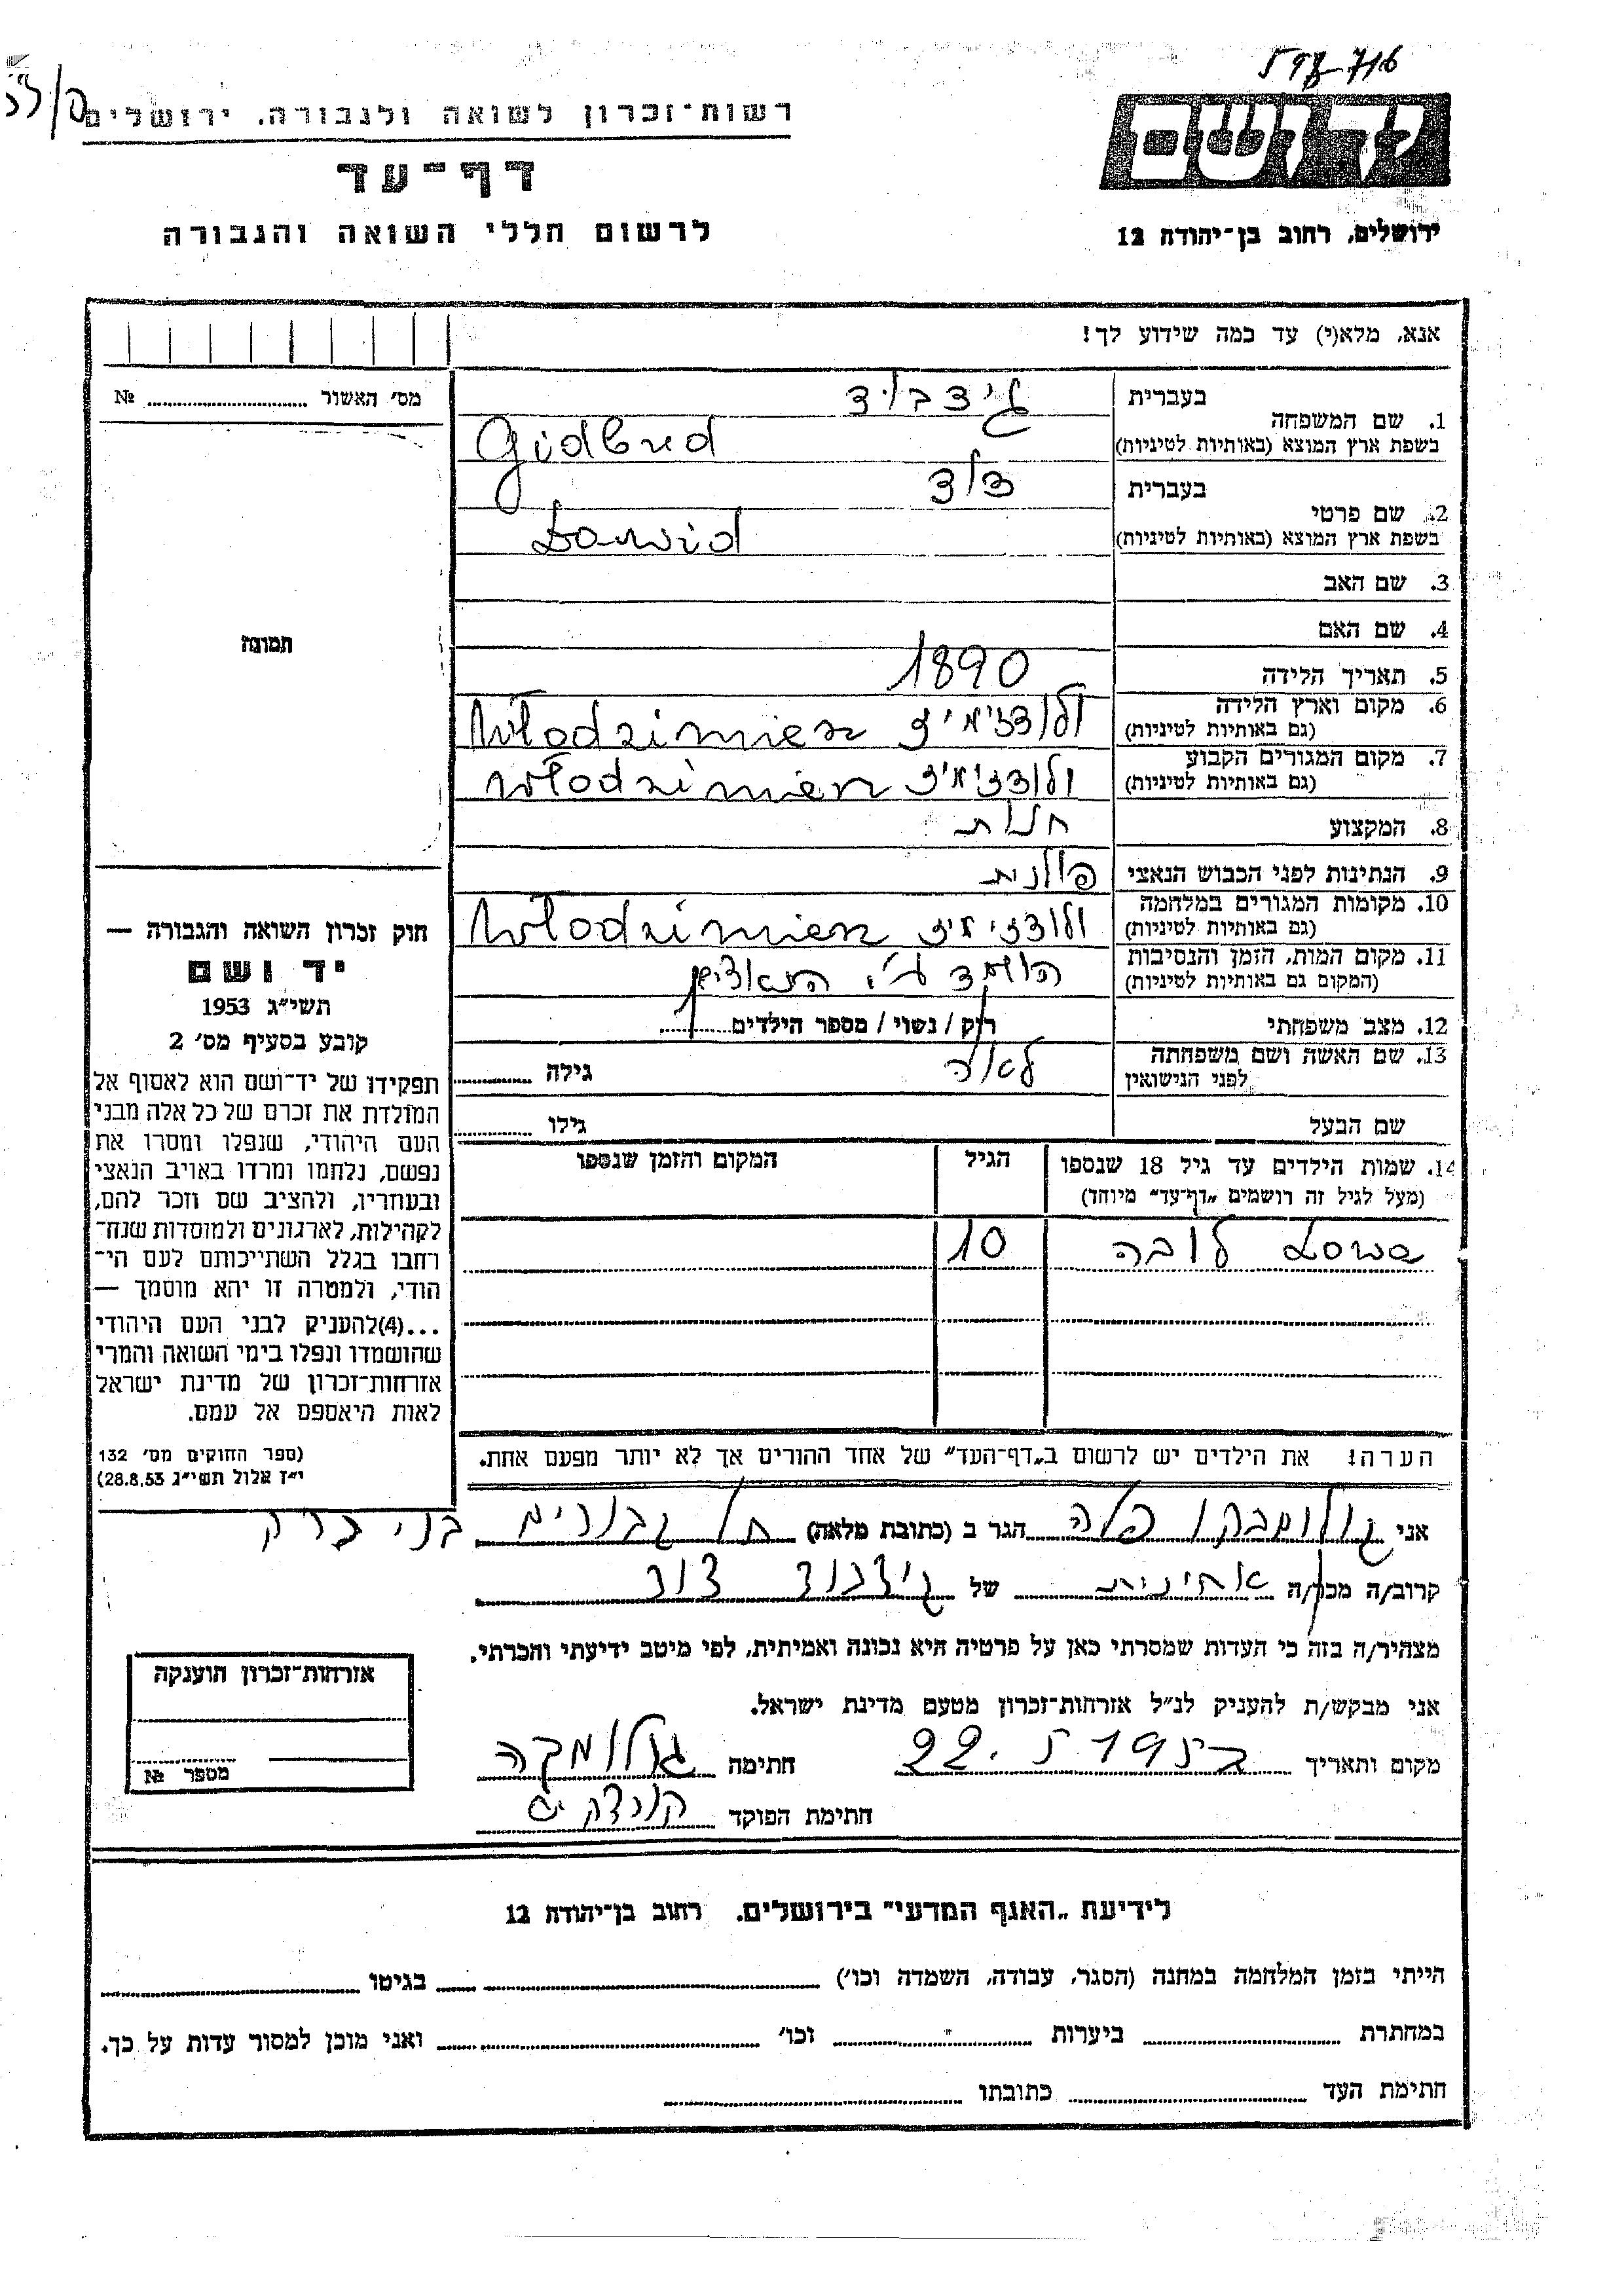 598-716
רשות־זכרון לשואה ולגבורה, ירושלים
דף־עד
לרשום חללי השואה והגבורה
יד ושם
ירושלים, רחוב בן־יהודה 12
אנא, מלא(י) עד כמה שידוע לך!
מס׳ האשור № 
תמונה
1. שם המשפחה
בעברית גידבוד
בשפת ארץ המוצא (באותיות לטיניות) Gidbud
2. שם פרטי
בעברית דוד
בשפת ארץ המוצא (באותיות לטיניות) Dawid
3. שם האב
4. שם האם
5. תאריך הלידה 1890
6. מקום וארץ הלידה
(גם באותיות לטיניות) ולודזימיז Włodzimierz
7. מקום המגורים הקבוע
(גם באותיות לטיניות) ולודזימיז Włodzimierz
8. המקצוע חנות
9. הנתינות לפני הכבוש הנאצי פולנית
10. מקומות המגורים במלחמה
(גם באותיות לטיניות) ולודזימיז Włodzimierz
11. מקום המות, הזמן והנסיבות
(המקום גם באותיות לטיניות) הושמד ע״י הנאצים
12. מצב משפחתי רוק / נשוי / מספר הילדים
13. שם האשה ושם משפחתה
לפני הנישואין לאה גילה
שם הבעל גילו
14. שמות הילדים עד גיל 18 שנספו הגיל המקום והזמן שנספו
(מעל לגיל זה רושמים „דף־עד״ מיוחד)
לובה 10
הערה! את הילדים יש לרשום ב„דף־העד״ של אחד ההורים אך לא יותר מפעם אחת.
חוק זכרון השואה והגבורה —
יד ושם
תשי״ג 1953
קובע בסעיף מס׳ 2
תפקידו של יד־ושם הוא לאסוף אל
המולדת את זכרם של כל אלה מבני
העם היהודי, שנפלו ומסרו את
נפשם, נלחמו ומרדו באויב הנאצי
ובעוזריו, ולהציב שם וזכר להם,
לקהילות, לארגונים ולמוסדות שנח־
רחבו בגלל השתייכותם לעם הי־
הודי, ולמטרה זו יהא מוסמך —
...(4)להעניק לבני העם היהודי
שהושמדו ונפלו בימי השואה והמרי
אזרחות־זכרון של מדינת ישראל
לאות היאספם אל עמם.
(ספר החוקים מס׳ 132
י״ז אלול תשי״ג 28.8.53)
אני גולומבקו בלה הגר ב (כתובת מלאה) תל גבורים בני ברק
קרוב/ה מכר/ה אחינית של גידבוד דוד
מצהיר/ה בזה כי העדות שמסרתי כאן על פרטיה היא נכונה ואמיתית, לפי מיטב ידיעתי והכרתי.
אני מבקש/ת להעניק לנ״ל אזרחות־זכרון מטעם מדינת ישראל.
מקום ותאריך 22.5 חתימה גולומבקה
חתימת הפוקד
אזרחות־זכרון הוענקה
מספר №
לידיעת „האגף המדעי״ בירושלים, רחוב בן־יהודה 12
הייתי בזמן המלחמה במחנה (הסגר, עבודה, השמדה וכו׳) בגיטו
במחתרת ביערות וכו׳ ואני מוכן למסור עדות על כך.
חתימת העד כתובתו